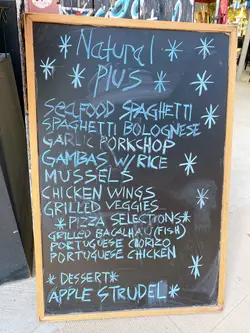 Natural
Plus
SEAFOOD SPAGHETTI
SPAGHETTI BOLOGNESE
GARLIC PORKCHOP
GAMBAS W/ RICE
MUSSELS
CHICKEN WINGS
GRILLED VEGGIES
*PIZZA SELECTIONS*
GRILLED BACALHAU (FISH)
PORTUGUESE CHORIZO
PORTUGUESE CHICKEN
*DESSERT*
APPLE STRUDEL*